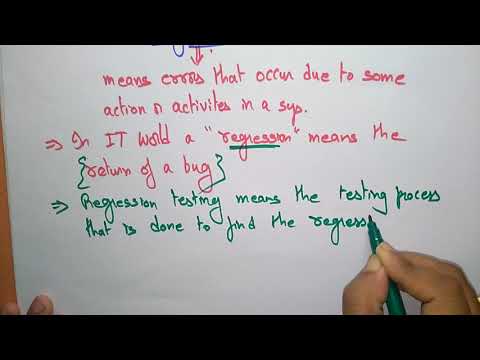 means errors that occur due to some
action or activites in a sys.
⇒ In IT world a "regression" means the
{return of a bug}
⇒ Regression testing means the testing process
that is done to find the regress